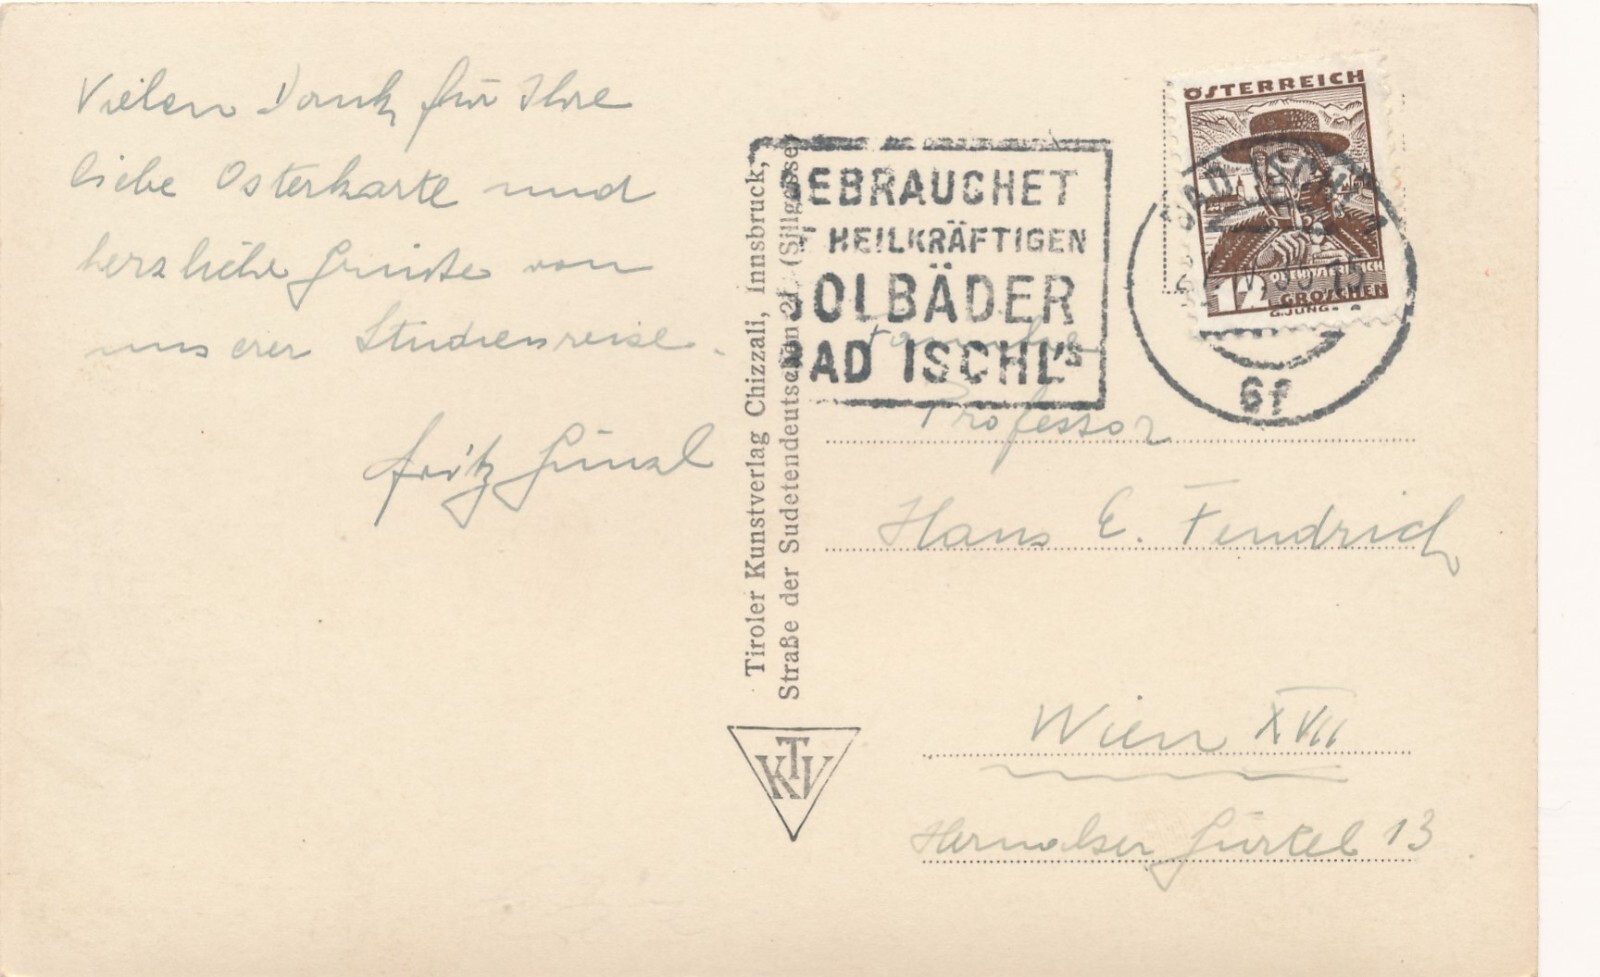 Vielen Dank für Ihre
liebe Osterkarte und
herzliche Grüsse von
unserer Studienreise.
Fritz Günzl
Tiroler Kunstverlag Chizzali, Innsbruck,
Straße der Sudetendeutschen 21. (Sillgasse)
KTV
GEBRAUCHET
HEILKRÄFTIGEN
SOLBÄDER
BAD ISCHL's
ÖSTERREICH
OBERÖSTERREICH
12 GROSCHEN
G.JUNG
BAD ISCHL
6f
Professor
Hans E. Fendrich
Wien XVII
Hernalser Gürtel 13